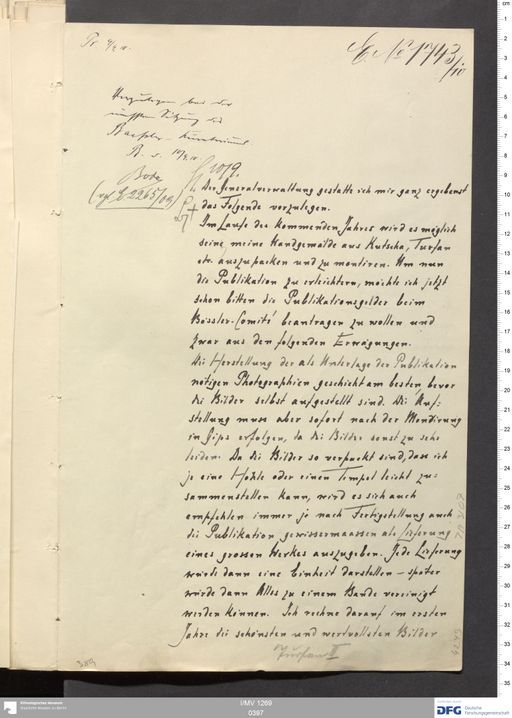 Pr. 9/9 10.
E. No 1743/10
Vorzulegen bei der
nächsten Sitzung des
Baessler Kuratoriums
B. d. 10/9 10
Bode
(vgl E 2265/09)
10/9.
Der Generalverwaltung gestatte ich mir ganz ergebenst
das Folgende vorzulegen.
Im Laufe des kommenden Jahres wird es möglich
seine, meine Wandgemälde aus Kutscha, Turfan
etc. auszupacken und zu montiren. Um nun
die Publikation zu erleichtern, möchte ich jetzt
schon bitten die Publikationsgelder beim
Bässler-Comité beantragen zu wollen und
zwar aus den folgenden Erwägungen.
Die Herstellung der als Unterlage der Publikation
nötigen Photographien geschieht am besten, bevor
die Bilder selbst aufgestellt sind. Die Auf=
stellung muss aber sofort nach der Montirung
in Gips erfolgen, da die Bilder sonst zu sehr
leiden. Da die Bilder so verpackt sind, dass ich
je eine Höhle oder einen Tempel leicht zu=
sammenstellen kann, wird es sich auch
empfehlen immer je nach Fertigstellung auch
die Publikation gewissermaassen als Lieferung
eines grossen Werkes auszugeben. Jede Lieferung
würde dann eine Einheit darstellen – später
würde dann Alles zu einem Bande vereinigt
werden können. Ich rechne darauf im ersten
Jahre die schönsten und wertvollsten Bilder
Turfan II
389
I/MV 1269
0397
Ethnologisches Museum
Staatliche Museen zu Berlin
DFG Deutsche
Forschungsgemeinschaft